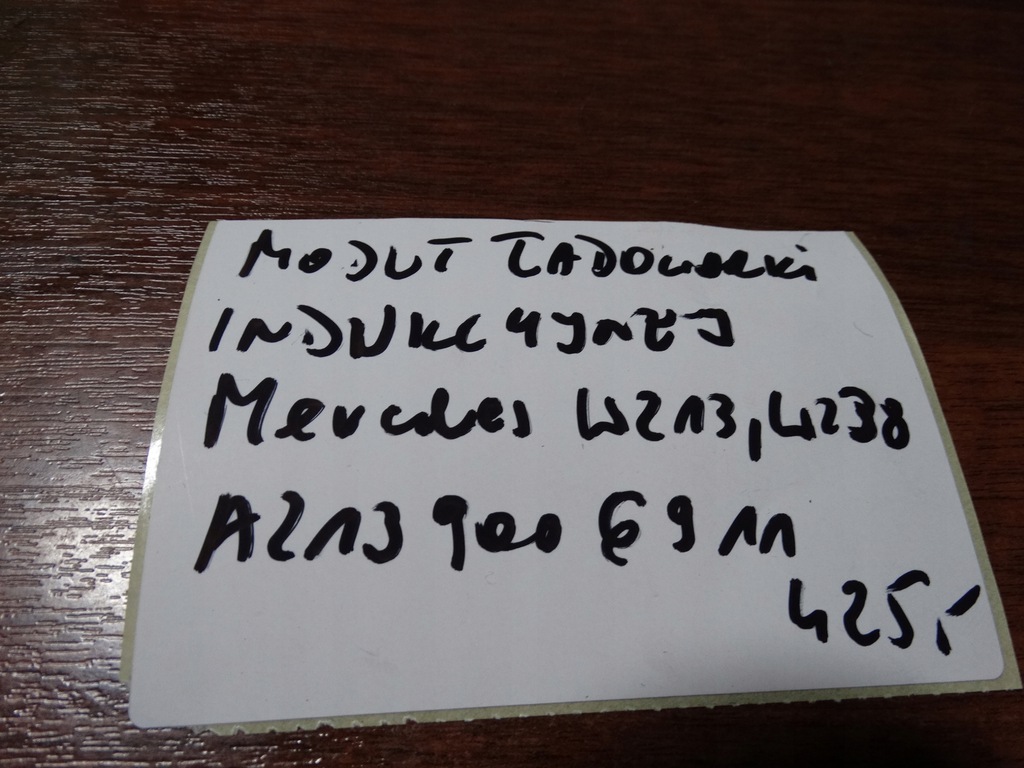 MODUŁ ŁADOWARKI
INDUKCYJNEJ
Mercedes W213, W238
A213 900 69 11
425,-